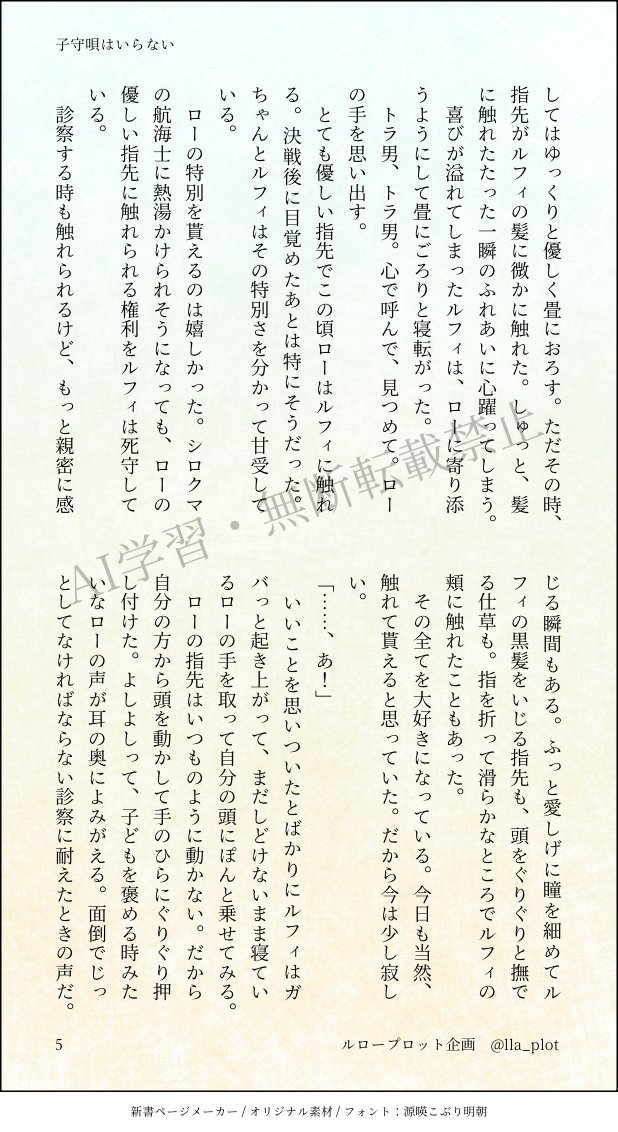 子守唄はいらない
してはゆっくりと優しく畳におろす。ただその時、
指先がルフィの髪に微かに触れた。しゅっと、髪
に触れたたった一瞬のふれあいに心躍ってしまう。
喜びが溢れてしまったルフィは、ローに寄り添
うようにして畳にごろりと寝転がった。
トラ男、トラ男。心で呼んで、見つめて。ロー
の手を思い出す。
とても優しい指先でこの頃ローはルフィに触れ
る。決戦後に目覚めたあとは特にそうだった。
ちゃんとルフィはその特別さを分かって甘受して
いる。
ローの特別を貰えるのは嬉しかった。シロクマ
の航海士に熱湯かけられそうになっても、ローの
優しい指先に触れられる権利をルフィは死守して
いる。
診察する時も触れられるけど、もっと親密に感
じる瞬間もある。ふっと愛しげに瞳を細めてル
フィの黒髪をいじる指先も、頭をぐりぐりと撫で
る仕草も。指を折って滑らかなところでルフィの
頬に触れたこともあった。
その全てを大好きになっている。今日も当然、
触れて貰えると思っていた。だから今は少し寂し
い。
「……、あ！」
いいことを思いついたとばかりにルフィはガ
バっと起き上がって、まだしどけないまま寝てい
るローの手を取って自分の頭にぽんと乗せてみる。
ローの指先はいつものように動かない。だから
自分の方から頭を動かして手のひらにぐりぐり押
し付けた。よしよしって、子どもを褒める時みた
いなローの声が耳の奥によみがえる。面倒でじっ
としてなければならない診察に耐えたときの声だ。
AI学習・無断転載禁止
5
ルロープロット企画 @lla_plot
新書ページメーカー / オリジナル素材 / フォント：源暎こぶり明朝